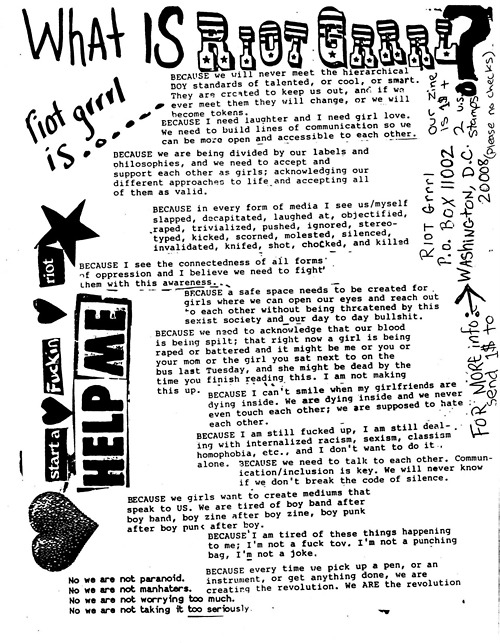 WHAT IS RIOT GRRRL?
riot grrrl
is.......
BECAUSE we will never meet the hierarchical
BOY standards of talented, or cool, or smart.
They are created to keep us out, and if we
ever meet them they will change, or we will
become tokens.
BECAUSE I need laughter and I need girl love.
We need to build lines of communication so we
can be more open and accessible to each other.
BECAUSE we are being divided by our labels and
philosophies, and we need to accept and
support each other as girls; acknowledging our
different approaches to life and accepting all
of them as valid.
BECAUSE in every form of media I see us/myself
slapped, decapitated, laughed at, objectified,
raped, trivialized, pushed, ignored, stereo-
typed, kicked, scorned, molested, silenced,
invalidated, knifed, shot, chocked, and killed
BECAUSE I see the connectedness of all forms
of oppression and I believe we need to fight
them with this awareness.
BECAUSE a safe space needs to be created for
girls where we can open our eyes and reach out
to each other without being threatened by this
sexist society and our day to day bullshit.
BECAUSE we need to acknowledge that our blood
is being spilt; that right now a girl is being
raped or battered and it might be me or you or
your mom or the girl you sat next to on the
bus last Tuesday, and she might be dead by the
time you finish reading this. I am not making
this up.
BECAUSE I can't smile when my girlfriends are
dying inside. We are dying inside and we never
even touch each other; we are supposed to hate
each other.
BECAUSE I am still fucked up, I am still deal-
ing with internalized racism, sexism, classism
homophobia, etc., and I don't want to do it
alone.
BECAUSE we need to talk to each other. Commun-
ication/inclusion is key. We will never know
if we don't break the code of silence.
BECAUSE we girls want to create mediums that
speak to US. We are tired of boy band after
boy band, boy zine after boy zine, boy punk
after boy punk after boy.
BECAUSE I am tired of these things happening
to me; I'm not a fuck toy. I'm not a punching
bag, I'm not a joke.
BECAUSE every time we pick up a pen, or an
instrument, or get anything done, we are
creating the revolution. We ARE the revolution
No we are not paranoid.
No we are not manhaters.
No we are not worrying too much.
No we are not taking it too seriously.
start a
Fuckin
riot
HELP ME
FOR MORE info:
send 1$ to
RIOT Grrrl
P.O. BOX 11002
WASHINGTON, D.C.
20008
our zine
is 1$ +
2 us
stamps
(please no checks)